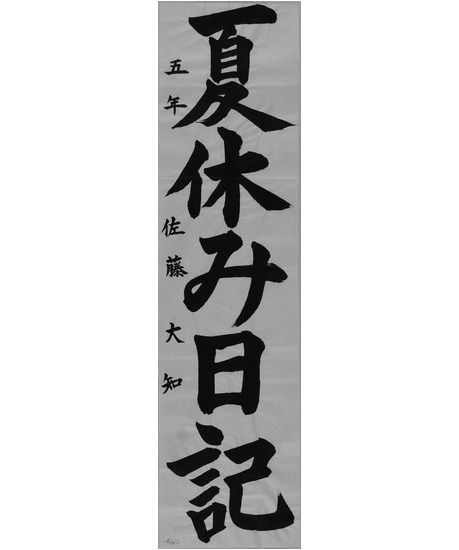 夏休み日記
五年 佐藤大知